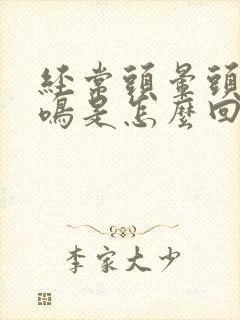 经常頭暈頭
鳴是怎麼回
李家大少